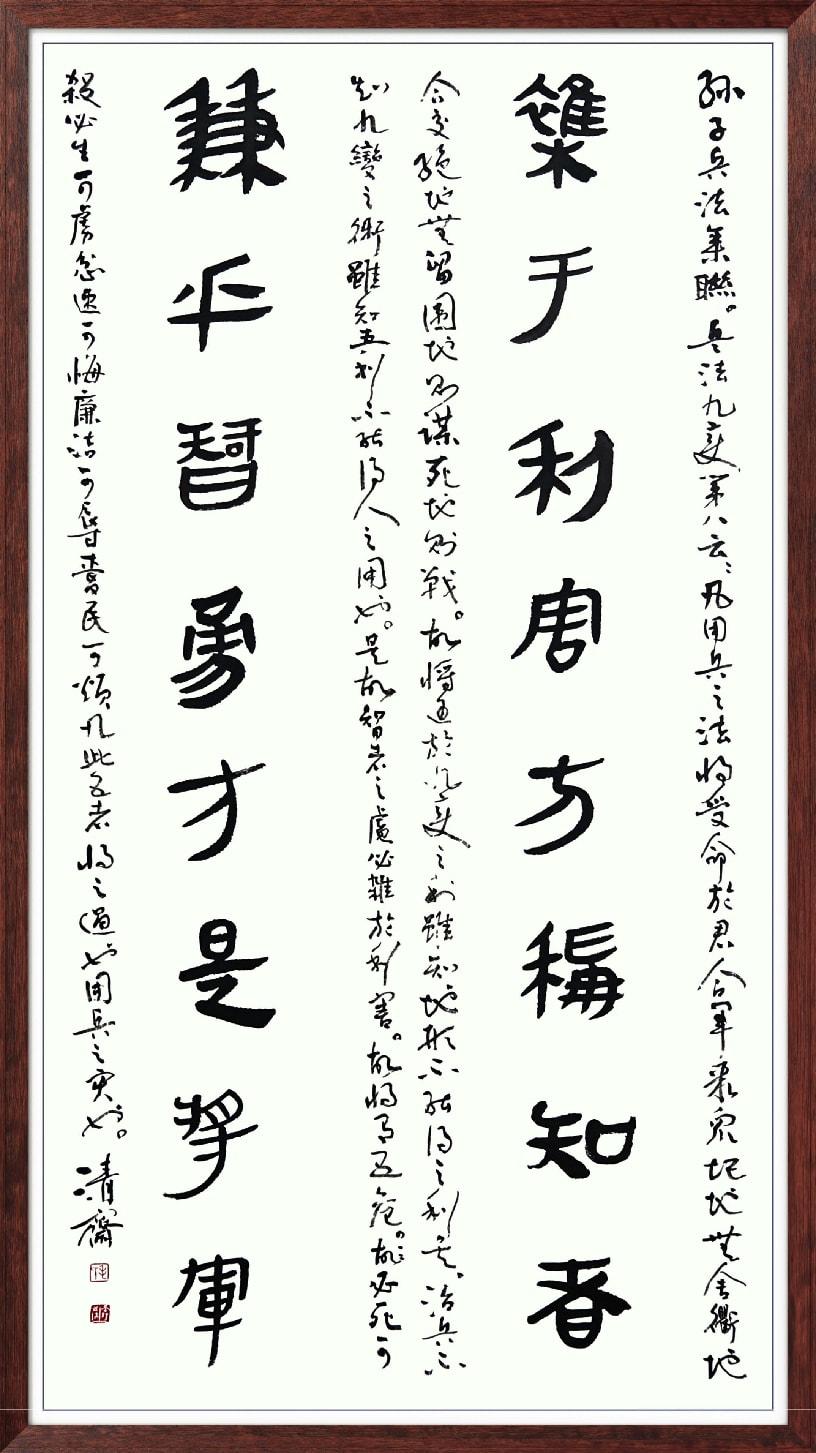 孫子兵法集聯。兵法九变第八云：凡用兵之法将受命於君合軍聚衆圮地無舍衢地
雜于利害方稱知者
合交絕地無留圍地則謀死地則戰。故將通於九变之利雖知地形不能得之利矣。治兵不
知九變之術雖知五利不能得人之用也。是故智者之慮必雜於利害。故将有五危。故必死可
兼乎智勇才是将軍
殺必生可虜忿速可悔廉洁可辱愛民可煩凡此五者将之過也用兵之灾也。清齋